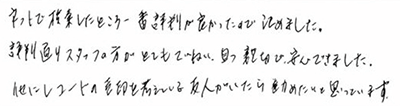 ネットで検索したところ一番評判が良かったので決めました。
評判通りスタッフの方がとてもていねい、且つ親切で安心できました。
他にレコードの売却を考えている友人がいたら勧めたいと思っています。